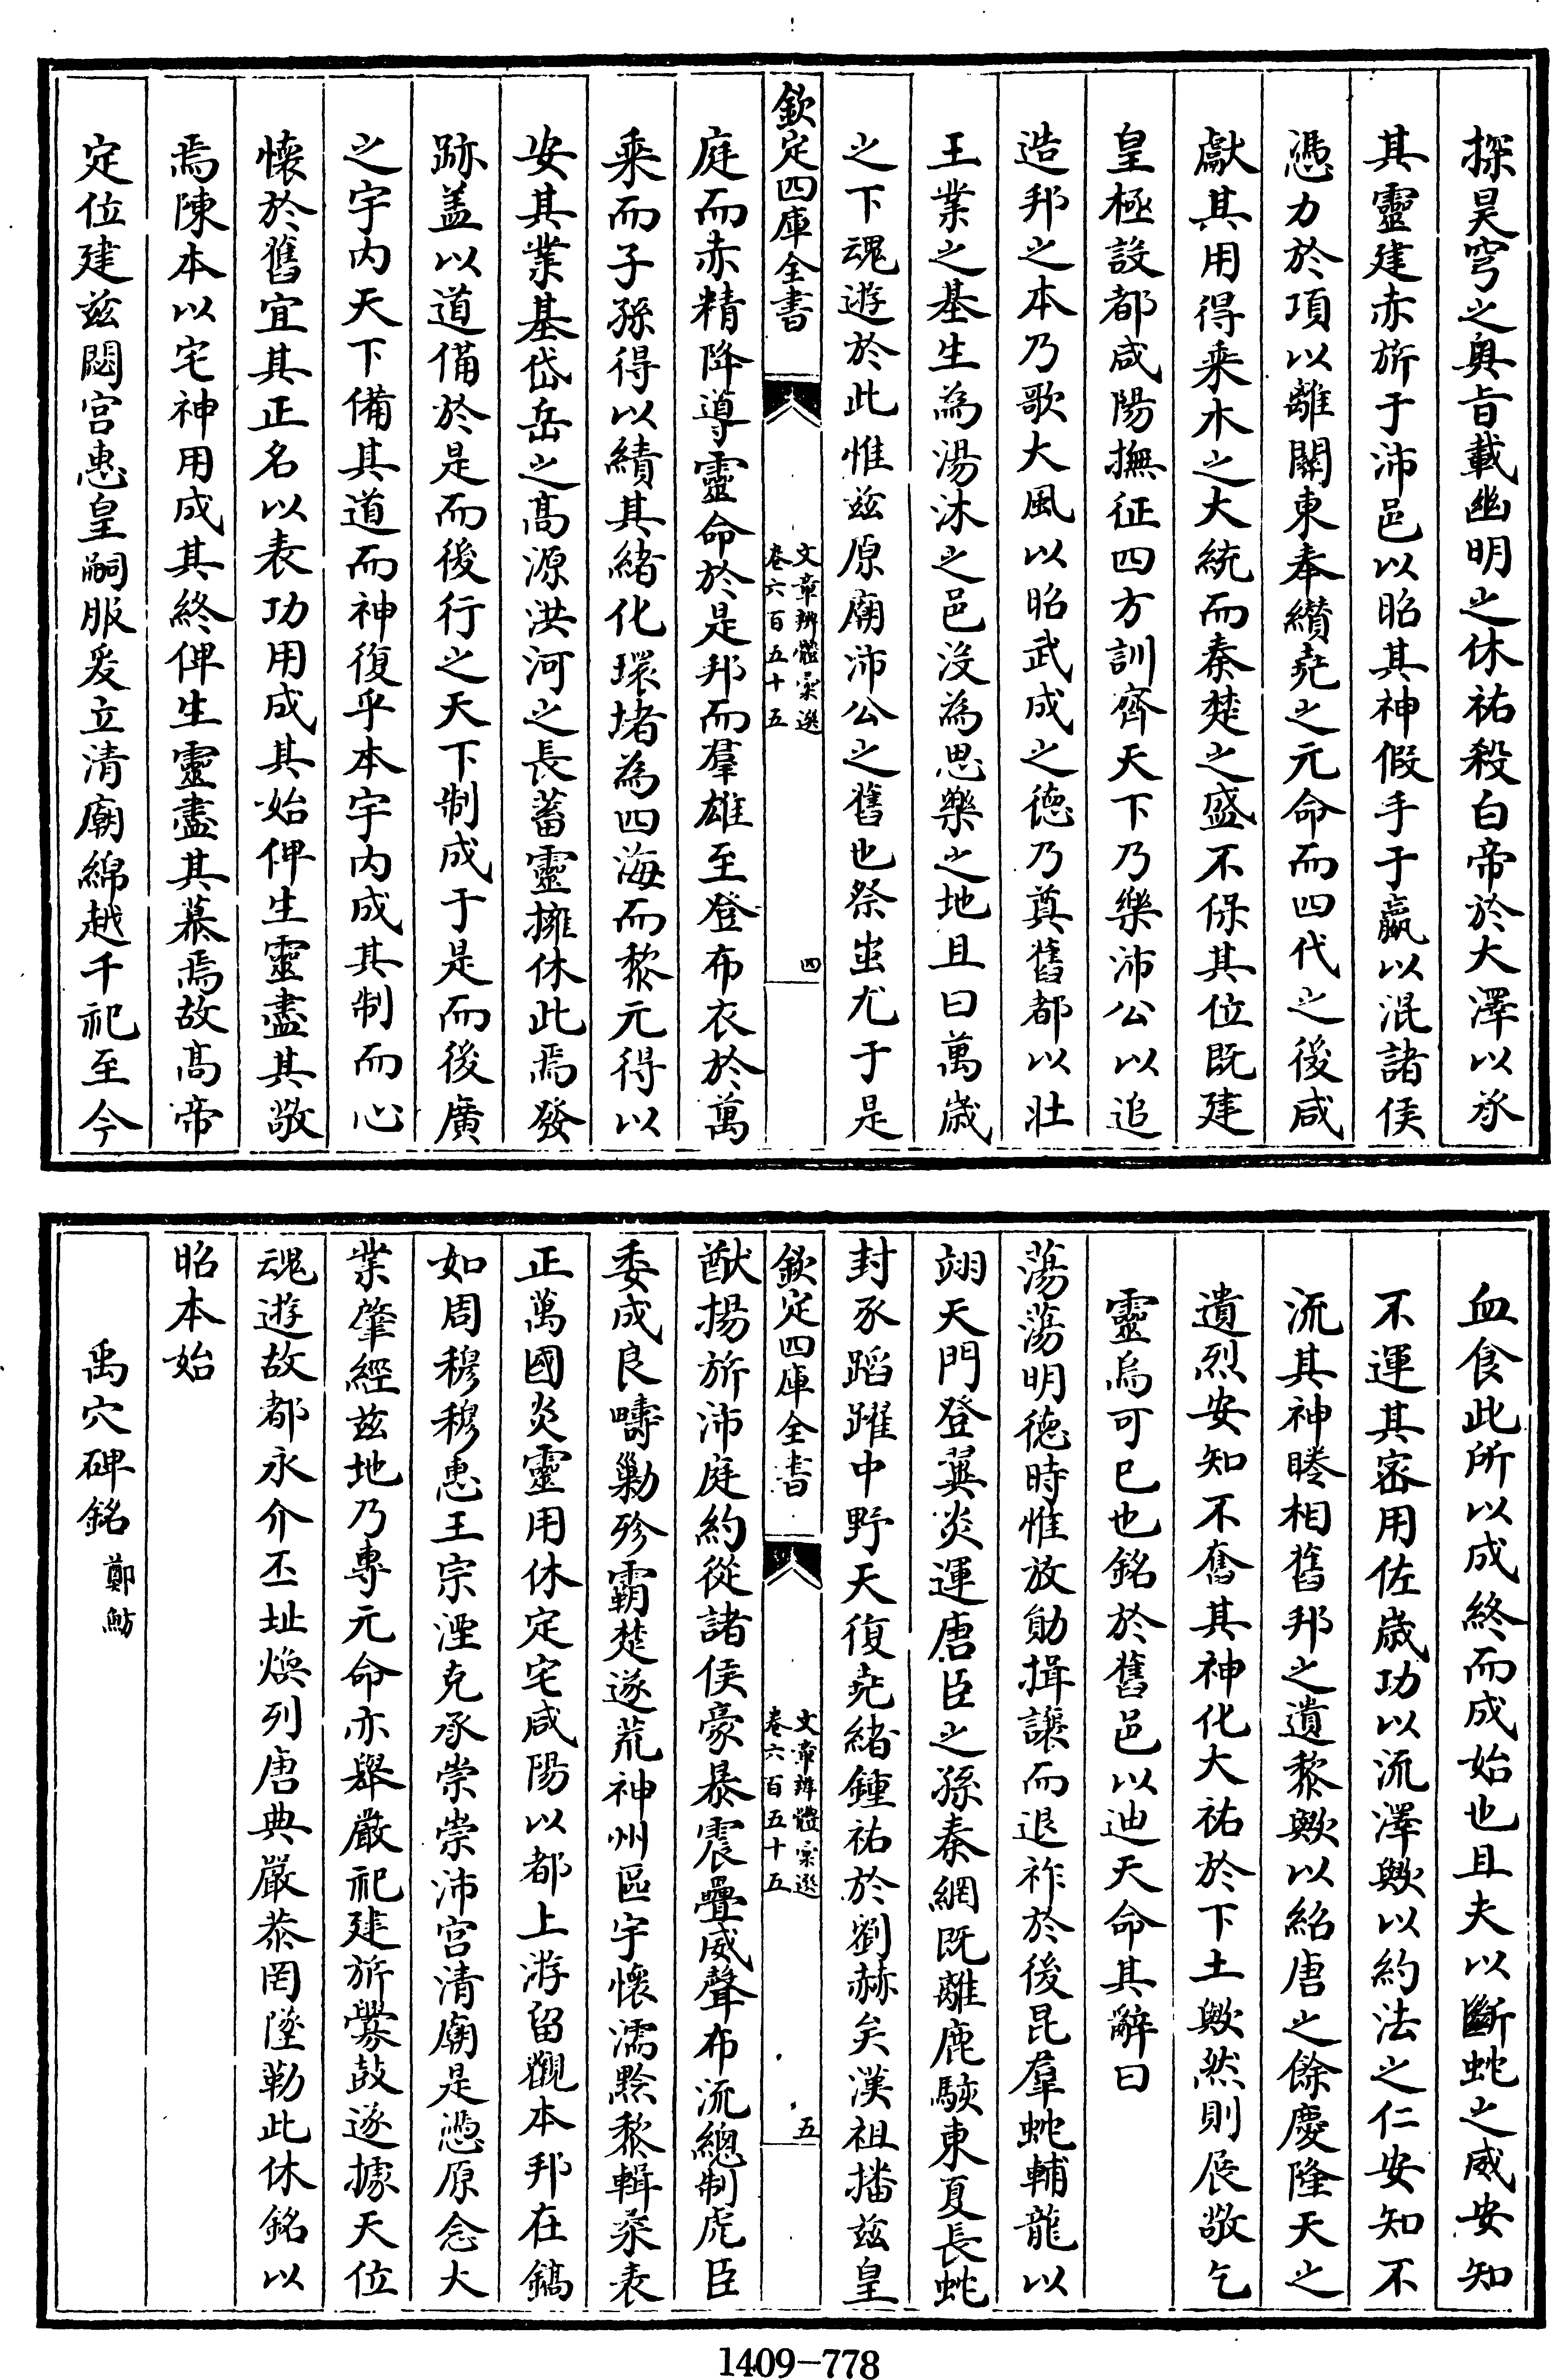 探昊穹之奥旨載幽明之休祐殺白帝於大澤以承
其靈建赤旂于沛邑以昭其神假手于嬴以混諸侯
憑力於項以離關東奉纉堯之元命而四代之後咸
獻其用得乗木之大統而秦楚之盛不保其位既建
皇極設都咸陽撫征四方訓齊天下乃樂沛公以追
造邦之本乃歌大風以昭武成之徳乃奠舊都以壯
王業之基生為湯沐之邑沒為思樂之地且曰萬歳
之下魂遊於此惟兹原廟沛公之舊也祭蚩尤于是
欽定四庫全書
文章辨體彚選
卷六百五十五
四
庭而赤精降導靈命於是邦而羣雄至登布衣於萬
乗而子孫得以績其緒化環堵為四海而黎元得以
安其業基岱岳之髙源洪河之長蓄靈擁休此焉發
跡盖以道備於是而後行之天下制成于是而後廣
之宇内天下備其道而神復乎本宇内成其制而心
懐於舊宜其正名以表功用成其始俾生靈盡其敬
焉陳本以宅神用成其終俾生靈盡其慕焉故髙帝
定位建兹閟宫惠皇嗣服爰立清廟綿越千祀至今
血食此所以成終而成始也且夫以斷蛇之威安知
不運其密用佐歳功以流澤歟以約法之仁安知不
流其神睠相舊邦之遺黎歟以紹唐之餘慶隆天之
遺烈安知不奮其神化大祐於下土歟然則展敬乞
靈烏可已也銘於舊邑以迪天命其辭曰
蕩蕩明徳時惟放勛揖讓而退祚於後昆羣蛇輔龍以
翊天門登翼炎運唐臣之孫秦網既離鹿駭東夏長蛇
封豕蹈躍中野天復堯緒鍾祐於劉赫矣漢祖播兹皇
欽定四庫全書
文章辨體彚選
卷六百五十五
五
猷揚旂沛庭約從諸侯豪暴震疊威聲布流總制虎臣
委成良疇勦殄霸楚遂荒神州區宇懐濡黔黎輯寧表
正萬國炎靈用休定宅咸陽以都上游留觀本邦在鎬
如周穆穆惠王宗湮克承崇崇沛宫清廟是憑原念大
業肇經兹地乃專元命亦舉嚴祀建旂釁鼓遂據天位
魂遊故都永介丕址煥列唐典嚴恭罔墜勒此休銘以
昭本始
禹穴碑銘 鄭魴
1409-778